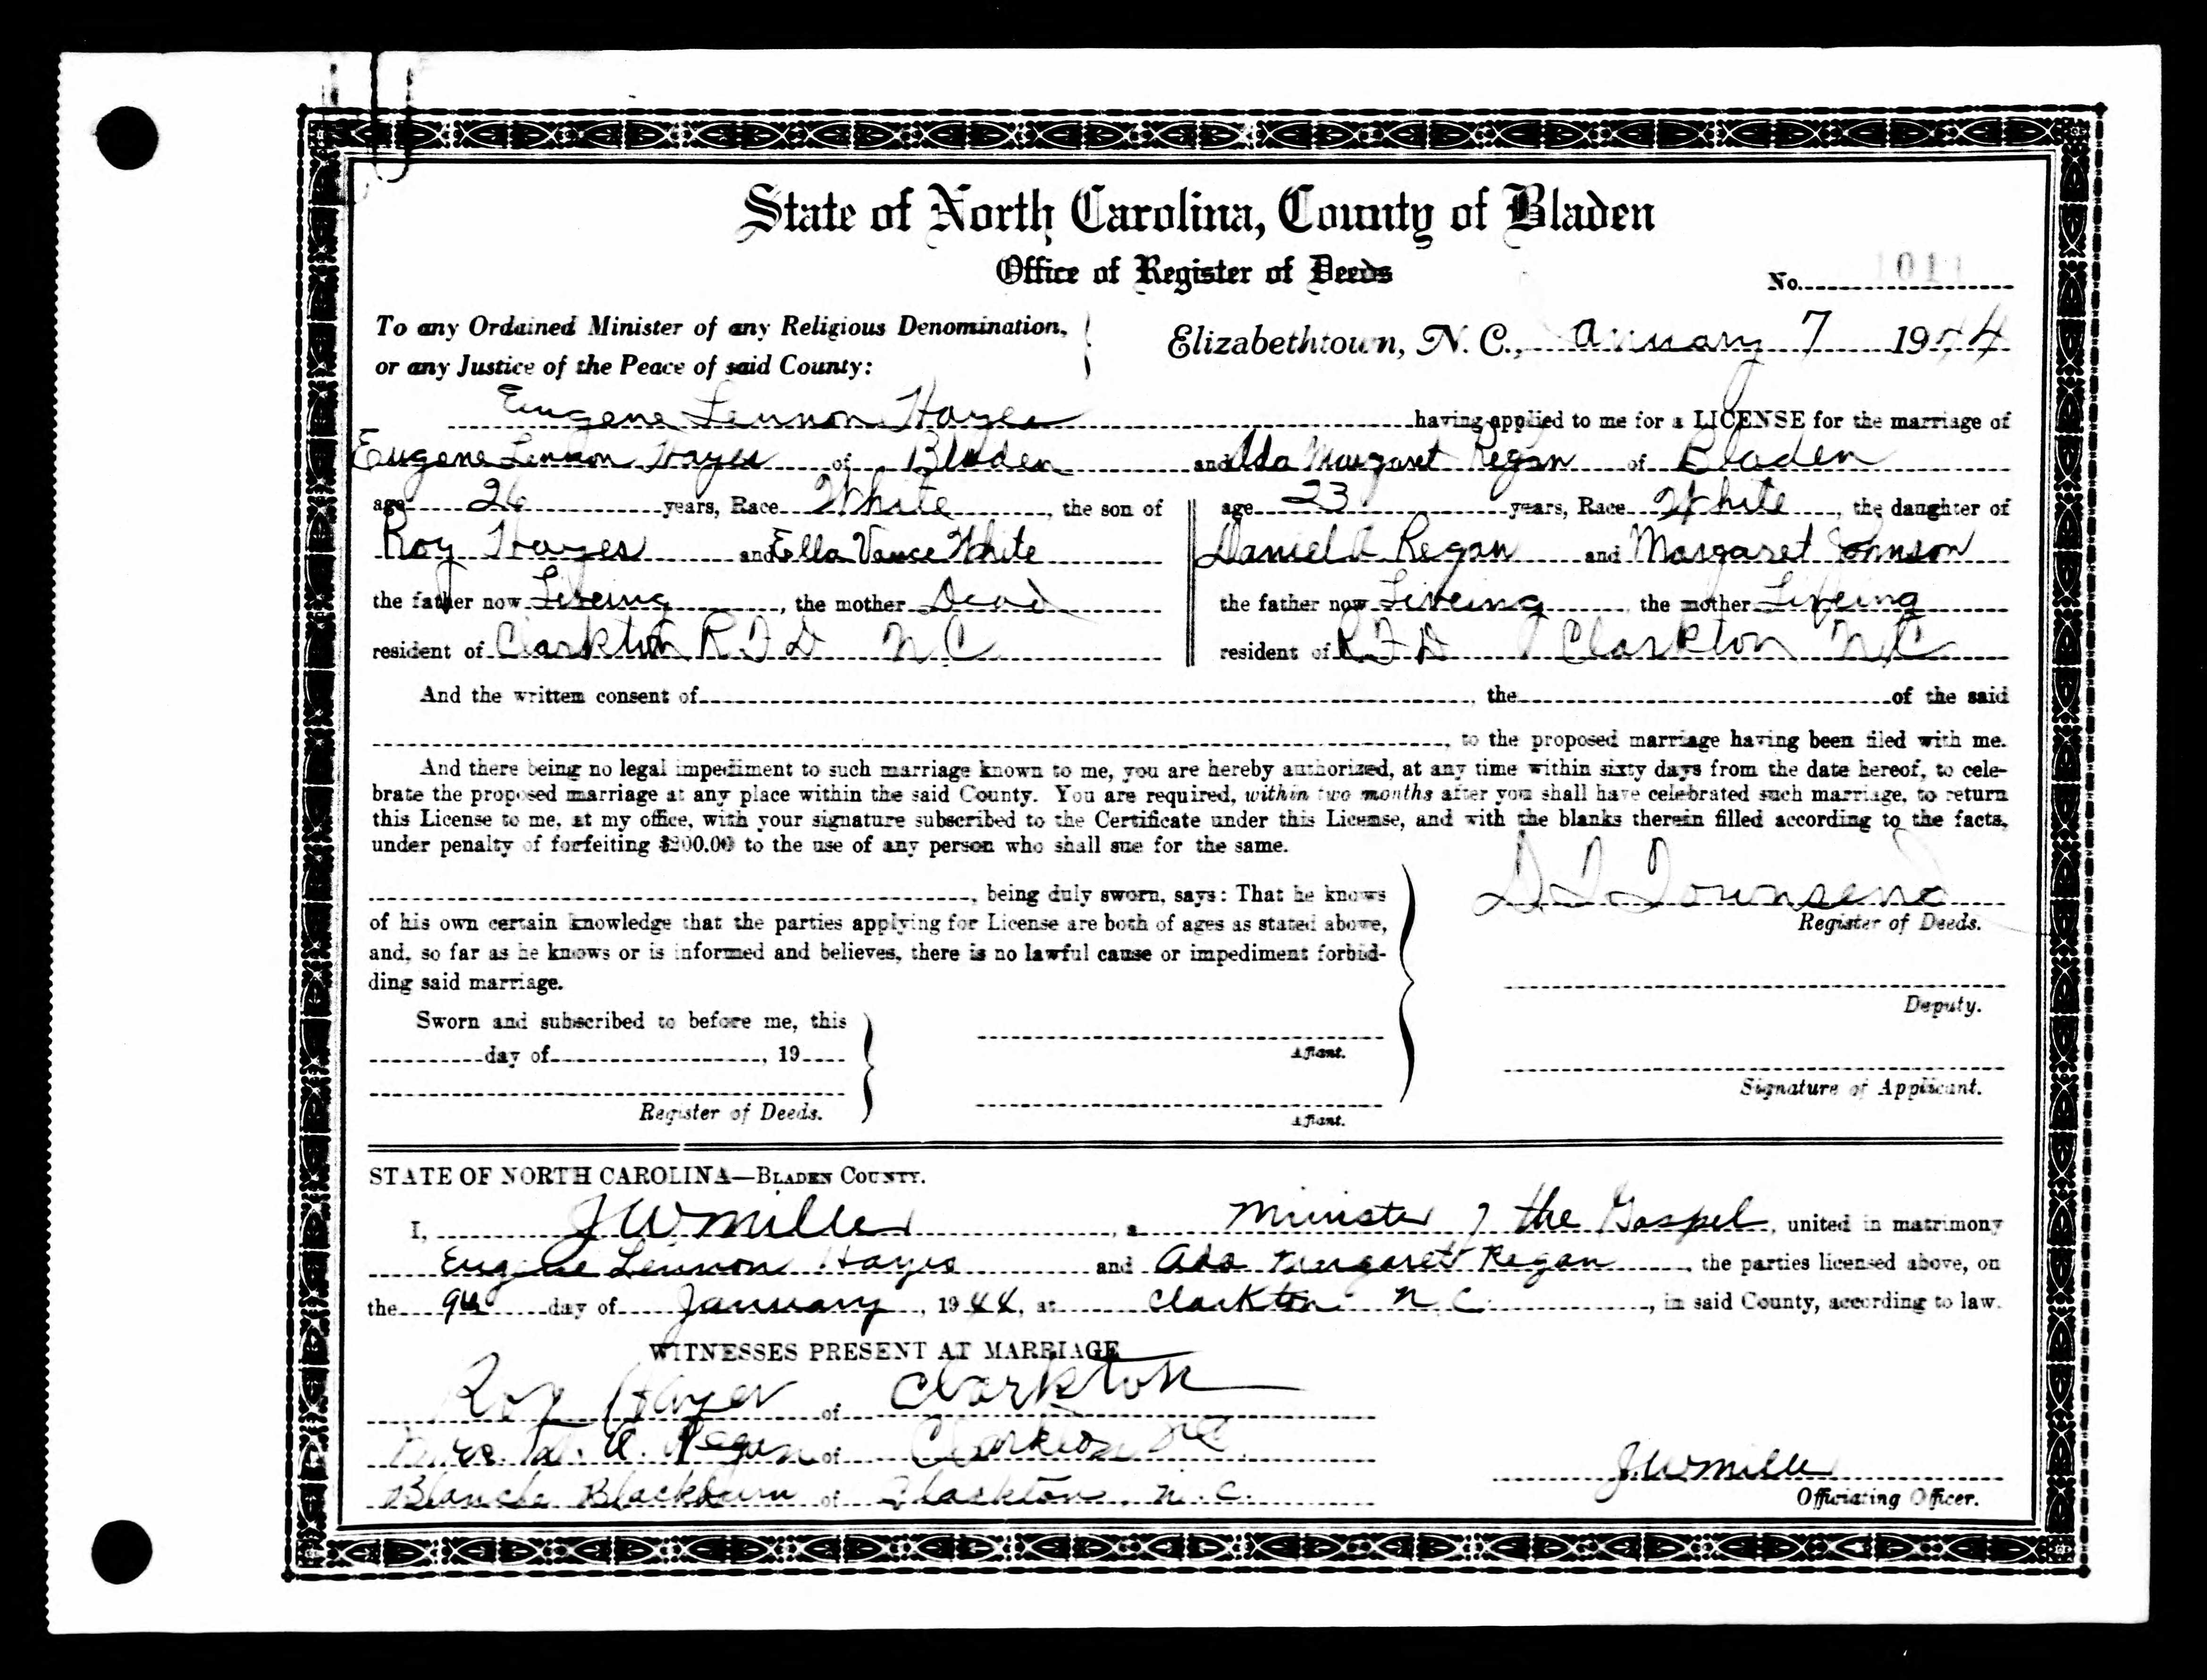 State of North Carolina, County of Bladen
Office of Register of Deeds
No. 101
To any Ordained Minister of any Religious Denomination,
or any Justice of the Peace of said County:
Elizabethtown, N. C., January 7 1944
Eugene Lennon Hayes having applied to me for a LICENSE for the marriage of
Eugene Lennon Hayes of Bladen and Ada Margaret Regan of Bladen
age 26 years, Race White, the son of
Roy Hayes and Ella Vance White
the father now Liveing, the mother Dead
resident of Clarkton R F D N C
age 23 years, Race White, the daughter of
Daniel A Regan and Margaret Johnson
the father now Liveing the mother Liveing
resident of R F D Clarkton N C
And the written consent of, the of the said
, to the proposed marriage having been filed with me.
And there being no legal impediment to such marriage known to me, you are hereby authorized, at any time within sixty days from the date hereof, to cele-
brate the proposed marriage at any place within the said County. You are required, within two months after you shall have celebrated such marriage, to return
this License to me, at my office, with your signature subscribed to the Certificate under this License, and with the blanks therein filled according to the facts,
under penalty of forfeiting $200.00 to the use of any person who shall sue for the same.
, being duly sworn, says: That he knows
of his own certain knowledge that the parties applying for License are both of ages as stated above,
and, so far as he knows or is informed and believes, there is no lawful cause or impediment forbid-
ding said marriage.
Sworn and subscribed to before me, this
day of, 19
Register of Deeds.
Affiant.
Affiant.
D. T. Townsend
Register of Deeds.
Deputy.
Signature of Applicant.
STATE OF NORTH CAROLINA—BLADEN COUNTY.
I, J W Miller, a Minister of the Gospel, united in matrimony
Eugene Lennon Hayes and Ada Margaret Regan, the parties licensed above, on
the 9th day of January, 1944, at Clarkton N. C., in said County, according to law.
WITNESSES PRESENT AT MARRIAGE
Roy Hayes of Clarkton
Mrs. A. Regan of Clarkton NC
Blanche Blackburn of Clarkton, N. C.
J. W Miller
Officiating Officer.